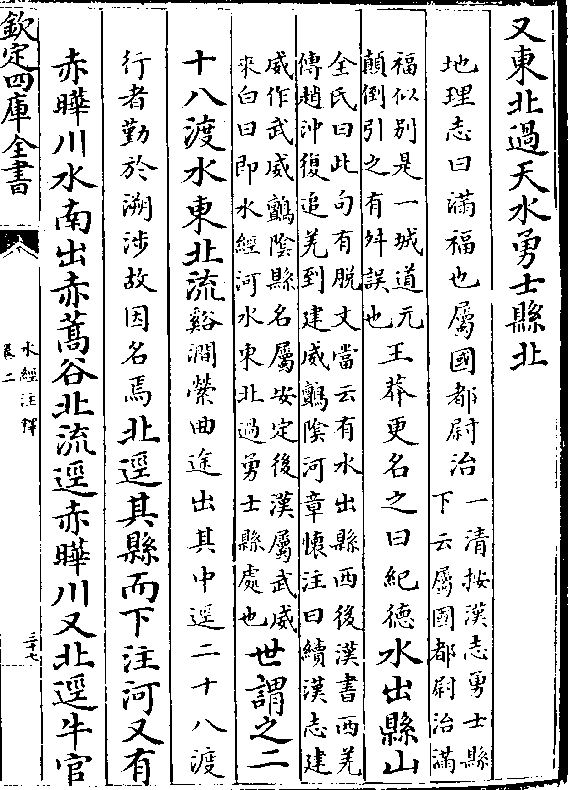 又東北過天水勇士縣北
地理志曰滿福也屬國都尉治
一清按漢志勇士縣
下云屬國都尉治滿
福似别是一城道元
顛倒引之有舛誤也
王莽更名之曰紀德水出縣山
全氏曰此句有脱文當云有水出縣西後漢書西羌
傳趙沖復追羌到建威鸇陰河章懷注曰續漢志建
威作武威鸇陰縣名屬安定後漢屬武威
來白曰即水經河水東北過勇士縣處也
世謂之二
十八渡水東北流谿澗縈曲途出其中逕二十八渡
行者勤於溯涉故因名焉北逕其縣而下注河又有
赤曄川水南出赤蒿谷北流逕赤曄川又北逕牛官
欽定四庫全書
水經注釋
卷二
三十七